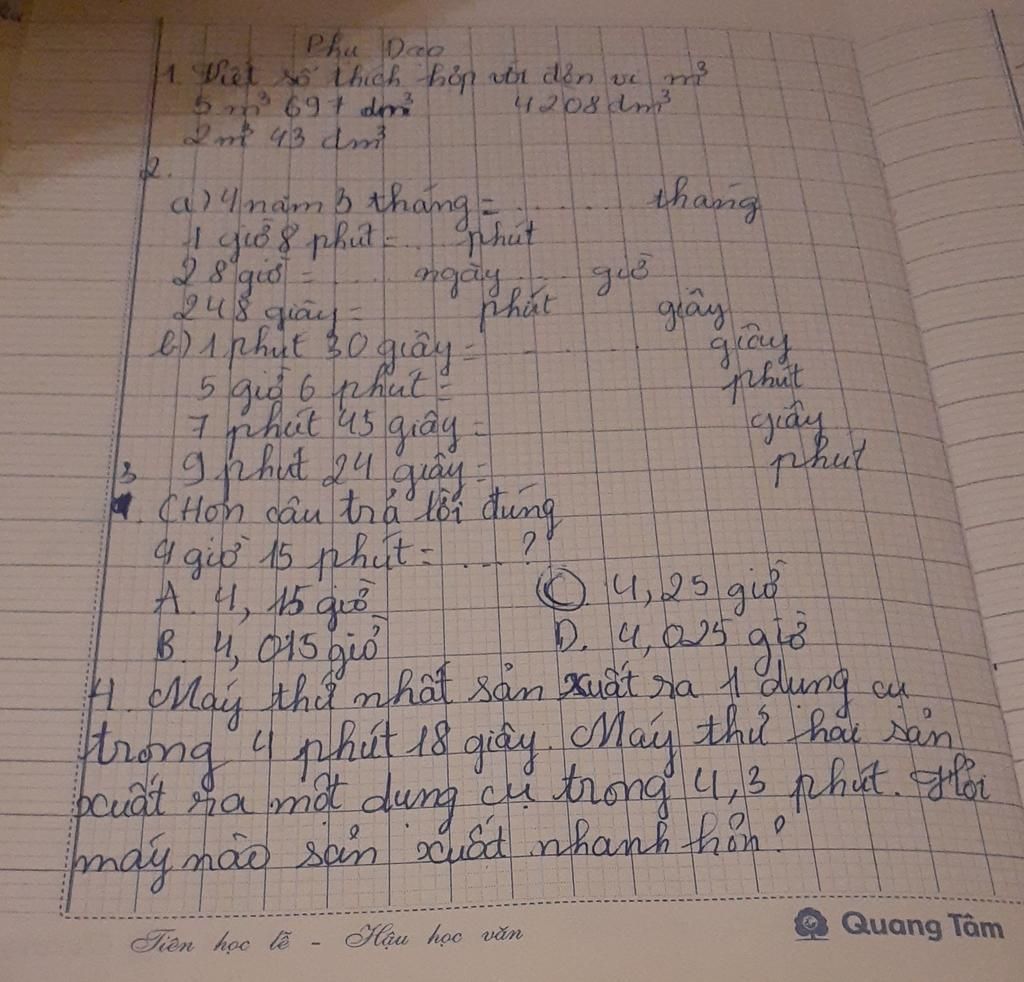 Phụ Đạo
1. Viết số thích hợp với đơn vị m³
5 m³ 697 dm³ 4208 dm³
2m³ 43 dm³
2.
a) 4 năm 3 tháng = ........ tháng
1 giờ 8 phút = .... phút
28 giờ = .... ngày .... giờ
248 giây = phút giây
b) 1 phút 30 giây = ........ giây
5 giờ 6 phút = phút
7 phút 45 giây = giây
3 9 phút 24 giây = phút
. Chọn câu trả lời đúng
4 giờ 15 phút = .... ?
A. 4,15 giờ C. 4,25 giờ
B. 4,015 giờ D. 4,025 giờ
4. Máy thứ nhất sản xuất ra 1 dụng cụ
trong 4 phút 18 giây. Máy thứ hai sản
xuất ra một dụng cụ trong 4,3 phút. Hỏi
máy nào sản xuất nhanh hơn?
Tiên học lễ - Hậu học văn
Quang Tâm